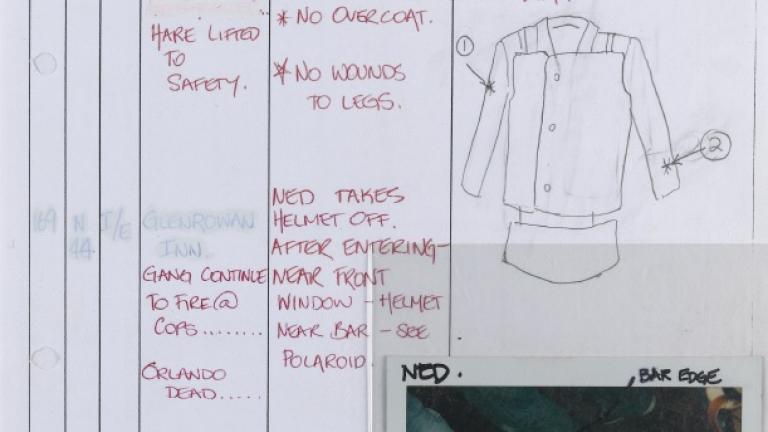 HARE LIFTED
TO
SAFETY.
* NO OVERCOAT.
* NO WOUNDS
TO LEGS.
1
2
169 N I/E GLENROWAN
44 INN.
GANG CONTINUE
TO FIRE @
COPS........
ORLANDO
DEAD.....
NED TAKES
HELMET OFF.
AFTER ENTERING-
NEAR FRONT
WINDOW - HELMET
NEAR BAR - SEE
POLAROID.
NED.
BAR EDGE